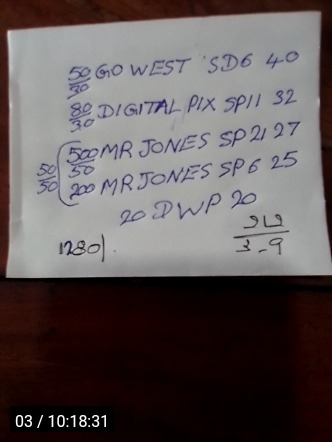 50/30 GO WEST SD6 40
80/30 DIGITAL PIX SP11 32
500/50 MR JONES SP 21 27
50/50 200 MR JONES SP 6 25
20 DWP 20
1280/.
03 / 10:18:31